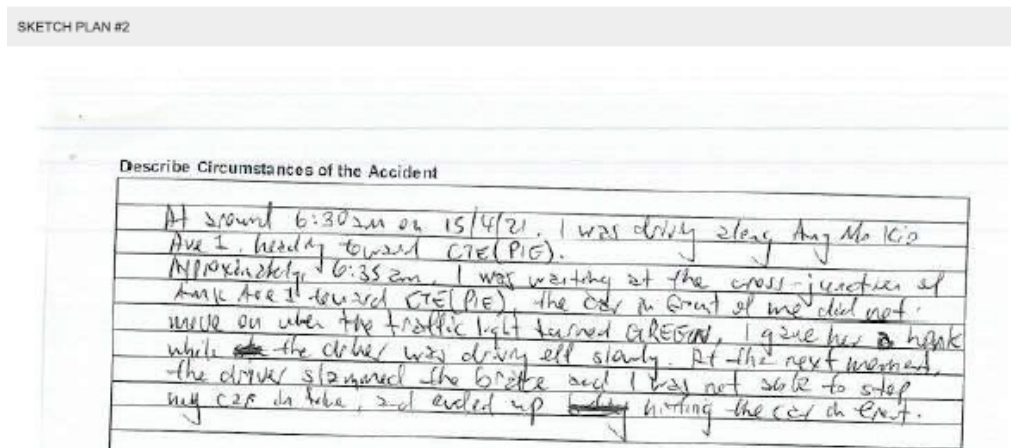 SKETCH PLAN #2
Describe Circumstances of the Accident
At around 6:30am on 15/4/21. I was driving along Ang Mo Kio
Ave 1, heading toward CTE(PIE).
Approximately, 6:35am, I was waiting at the cross-junction of
AMK Ave 1 toward CTE(PIE), the car in front of me did not
move on when the traffic light turned GREEN, I gave her a honk
while the driver was driving off slowly. At the next moment,
the driver slammed the brake and I was not able to stop
my car in time, and ended up hitting the car in front.